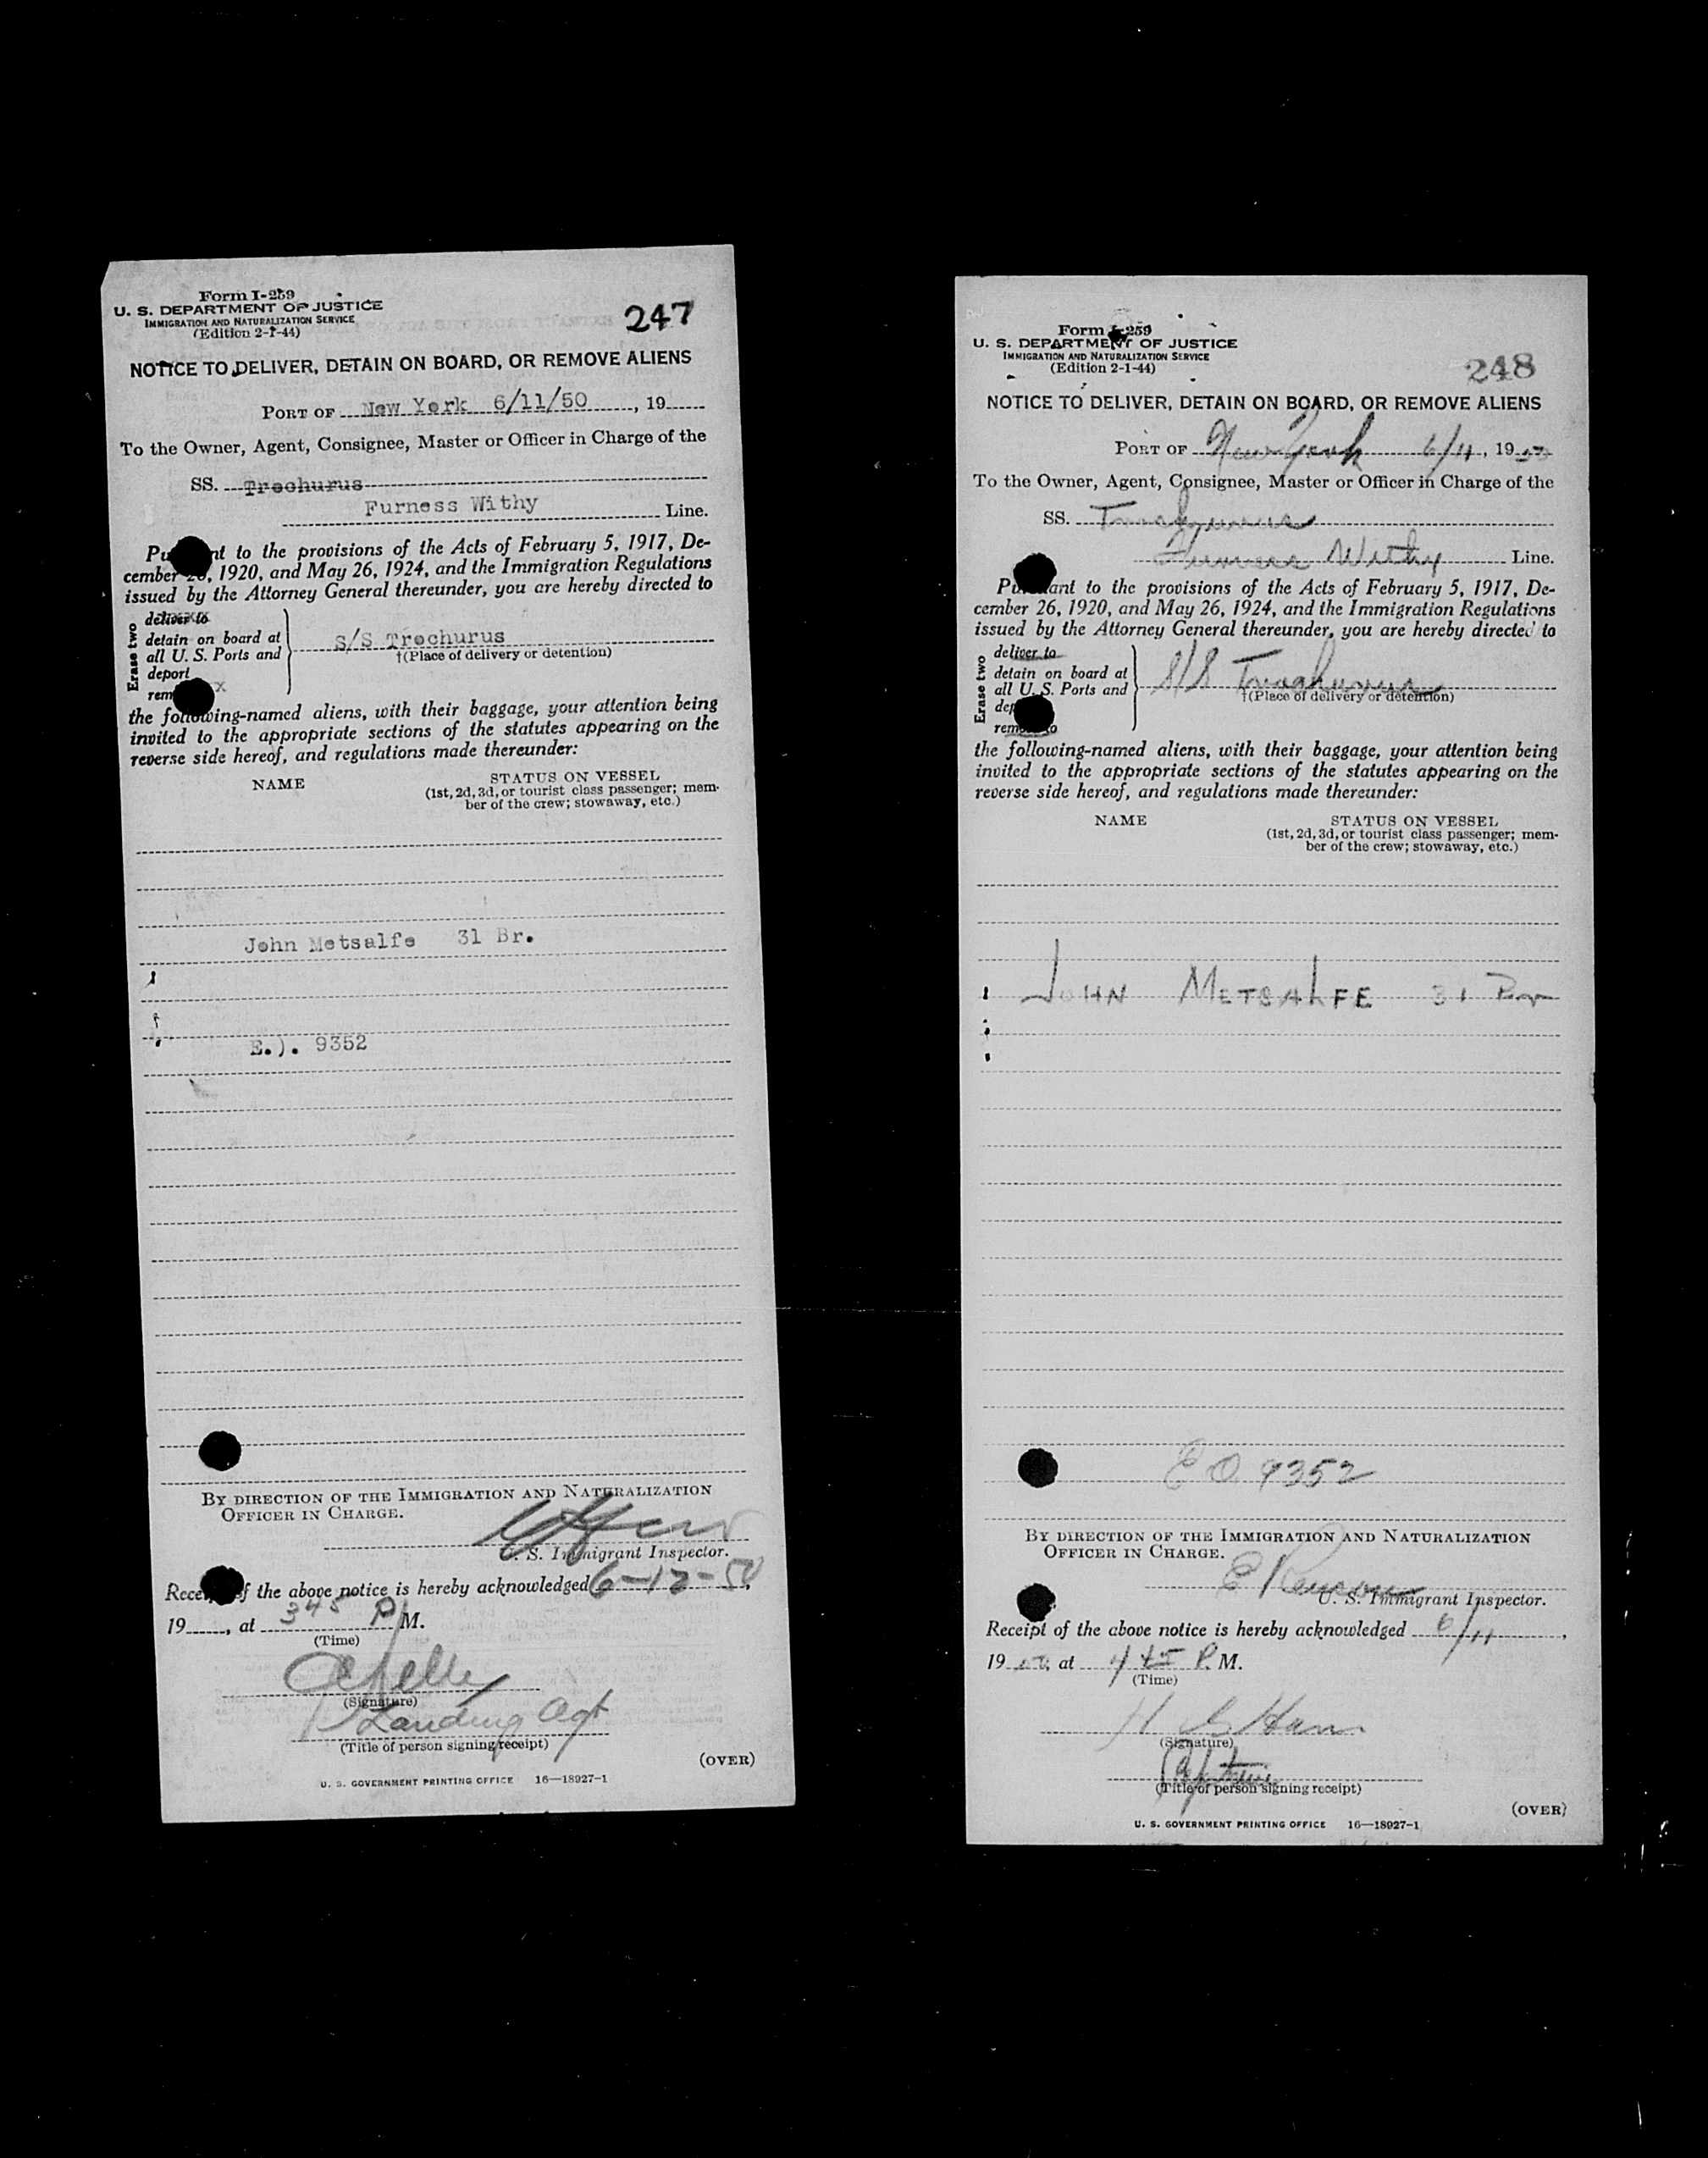 Form I-259
U. S. DEPARTMENT OF JUSTICE
IMMIGRATION AND NATURALIZATION SERVICE
(Edition 2-1-44)
247
NOTICE TO DELIVER, DETAIN ON BOARD, OR REMOVE ALIENS
PORT OF New York 6/11/50, 19
To the Owner, Agent, Consignee, Master or Officer in Charge of the
SS. Trochurus
Furness Withy Line.
Pu nt to the provisions of the Acts of February 5, 1917, De-
cember 26, 1920, and May 26, 1924, and the Immigration Regulations
issued by the Attorney General thereunder, you are hereby directed to
Erase two
deliver to
detain on board at
all U. S. Ports and
deport
rem
S/S Trochurus
†(Place of delivery or detention)
the following-named aliens, with their baggage, your attention being
invited to the appropriate sections of the statutes appearing on the
reverse side hereof, and regulations made thereunder:
NAME STATUS ON VESSEL
(1st, 2d, 3d, or tourist class passenger; mem-
ber of the crew; stowaway, etc.)
John Metsalfe 31 Br.
E.). 9352
BY DIRECTION OF THE IMMIGRATION AND NATURALIZATION
OFFICER IN CHARGE.
U. S. Immigrant Inspector.
Recei of the above notice is hereby acknowledged 6-12-50,
19, at 345 P M.
(Time)
(Signature)
Landing Agt
(Title of person signing receipt)
(OVER)
U. S. GOVERNMENT PRINTING OFFICE 16—18927-1
Form I-259
U. S. DEPARTMENT OF JUSTICE
IMMIGRATION AND NATURALIZATION SERVICE
(Edition 2-1-44)
248
NOTICE TO DELIVER, DETAIN ON BOARD, OR REMOVE ALIENS
PORT OF New York 6/11, 1950
To the Owner, Agent, Consignee, Master or Officer in Charge of the
SS.
Furness Withy Line.
Pu ant to the provisions of the Acts of February 5, 1917, De-
cember 26, 1920, and May 26, 1924, and the Immigration Regulations
issued by the Attorney General thereunder, you are hereby directed to
Erase two
deliver to
detain on board at
all U. S. Ports and
dep
remove to
S/S
†(Place of delivery or detention)
the following-named aliens, with their baggage, your attention being
invited to the appropriate sections of the statutes appearing on the
reverse side hereof, and regulations made thereunder:
NAME STATUS ON VESSEL
(1st, 2d, 3d, or tourist class passenger; mem-
ber of the crew; stowaway, etc.)
JOHN METSALFE 31 Br
E O 9352
BY DIRECTION OF THE IMMIGRATION AND NATURALIZATION
OFFICER IN CHARGE.
U. S. Immigrant Inspector.
Receipt of the above notice is hereby acknowledged 6/11,
1950, at 4 45 P. M.
(Time)
(Signature)
(Title of person signing receipt)
(OVER)
U. S. GOVERNMENT PRINTING OFFICE 16—18927-1